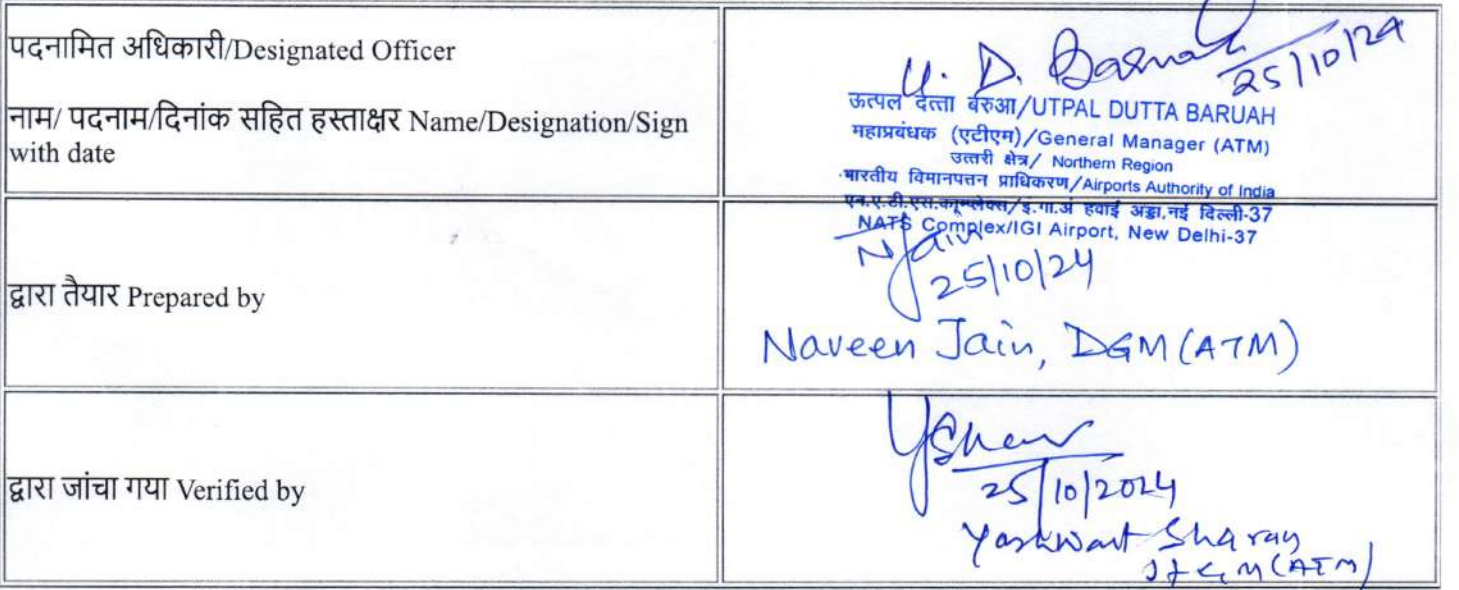 पदनामित अधिकारी/Designated Officer
नाम/ पदनाम/दिनांक सहित हस्ताक्षर Name/Designation/Sign
with date
U. D. Baruah
25/10/24
ऊत्पल दत्ता बरुआ/UTPAL DUTTA BARUAH
महाप्रबंधक (एटीएम)/General Manager (ATM)
उत्तरी क्षेत्र/ Northern Region
भारतीय विमानपत्तन प्राधिकरण/Airports Authority of India
एन.ए.टी.एस.काम्प्लेक्स/इं.गा.अं हवाई अड्डा,नई दिल्ली-37
NATS Complex/IGI Airport, New Delhi-37
द्वारा तैयार Prepared by
NJain
25/10/24
Naveen Jain, DGM (ATM)
द्वारा जांचा गया Verified by
25/10/2024
Yashwant Sharan
Jt GM (ATM)